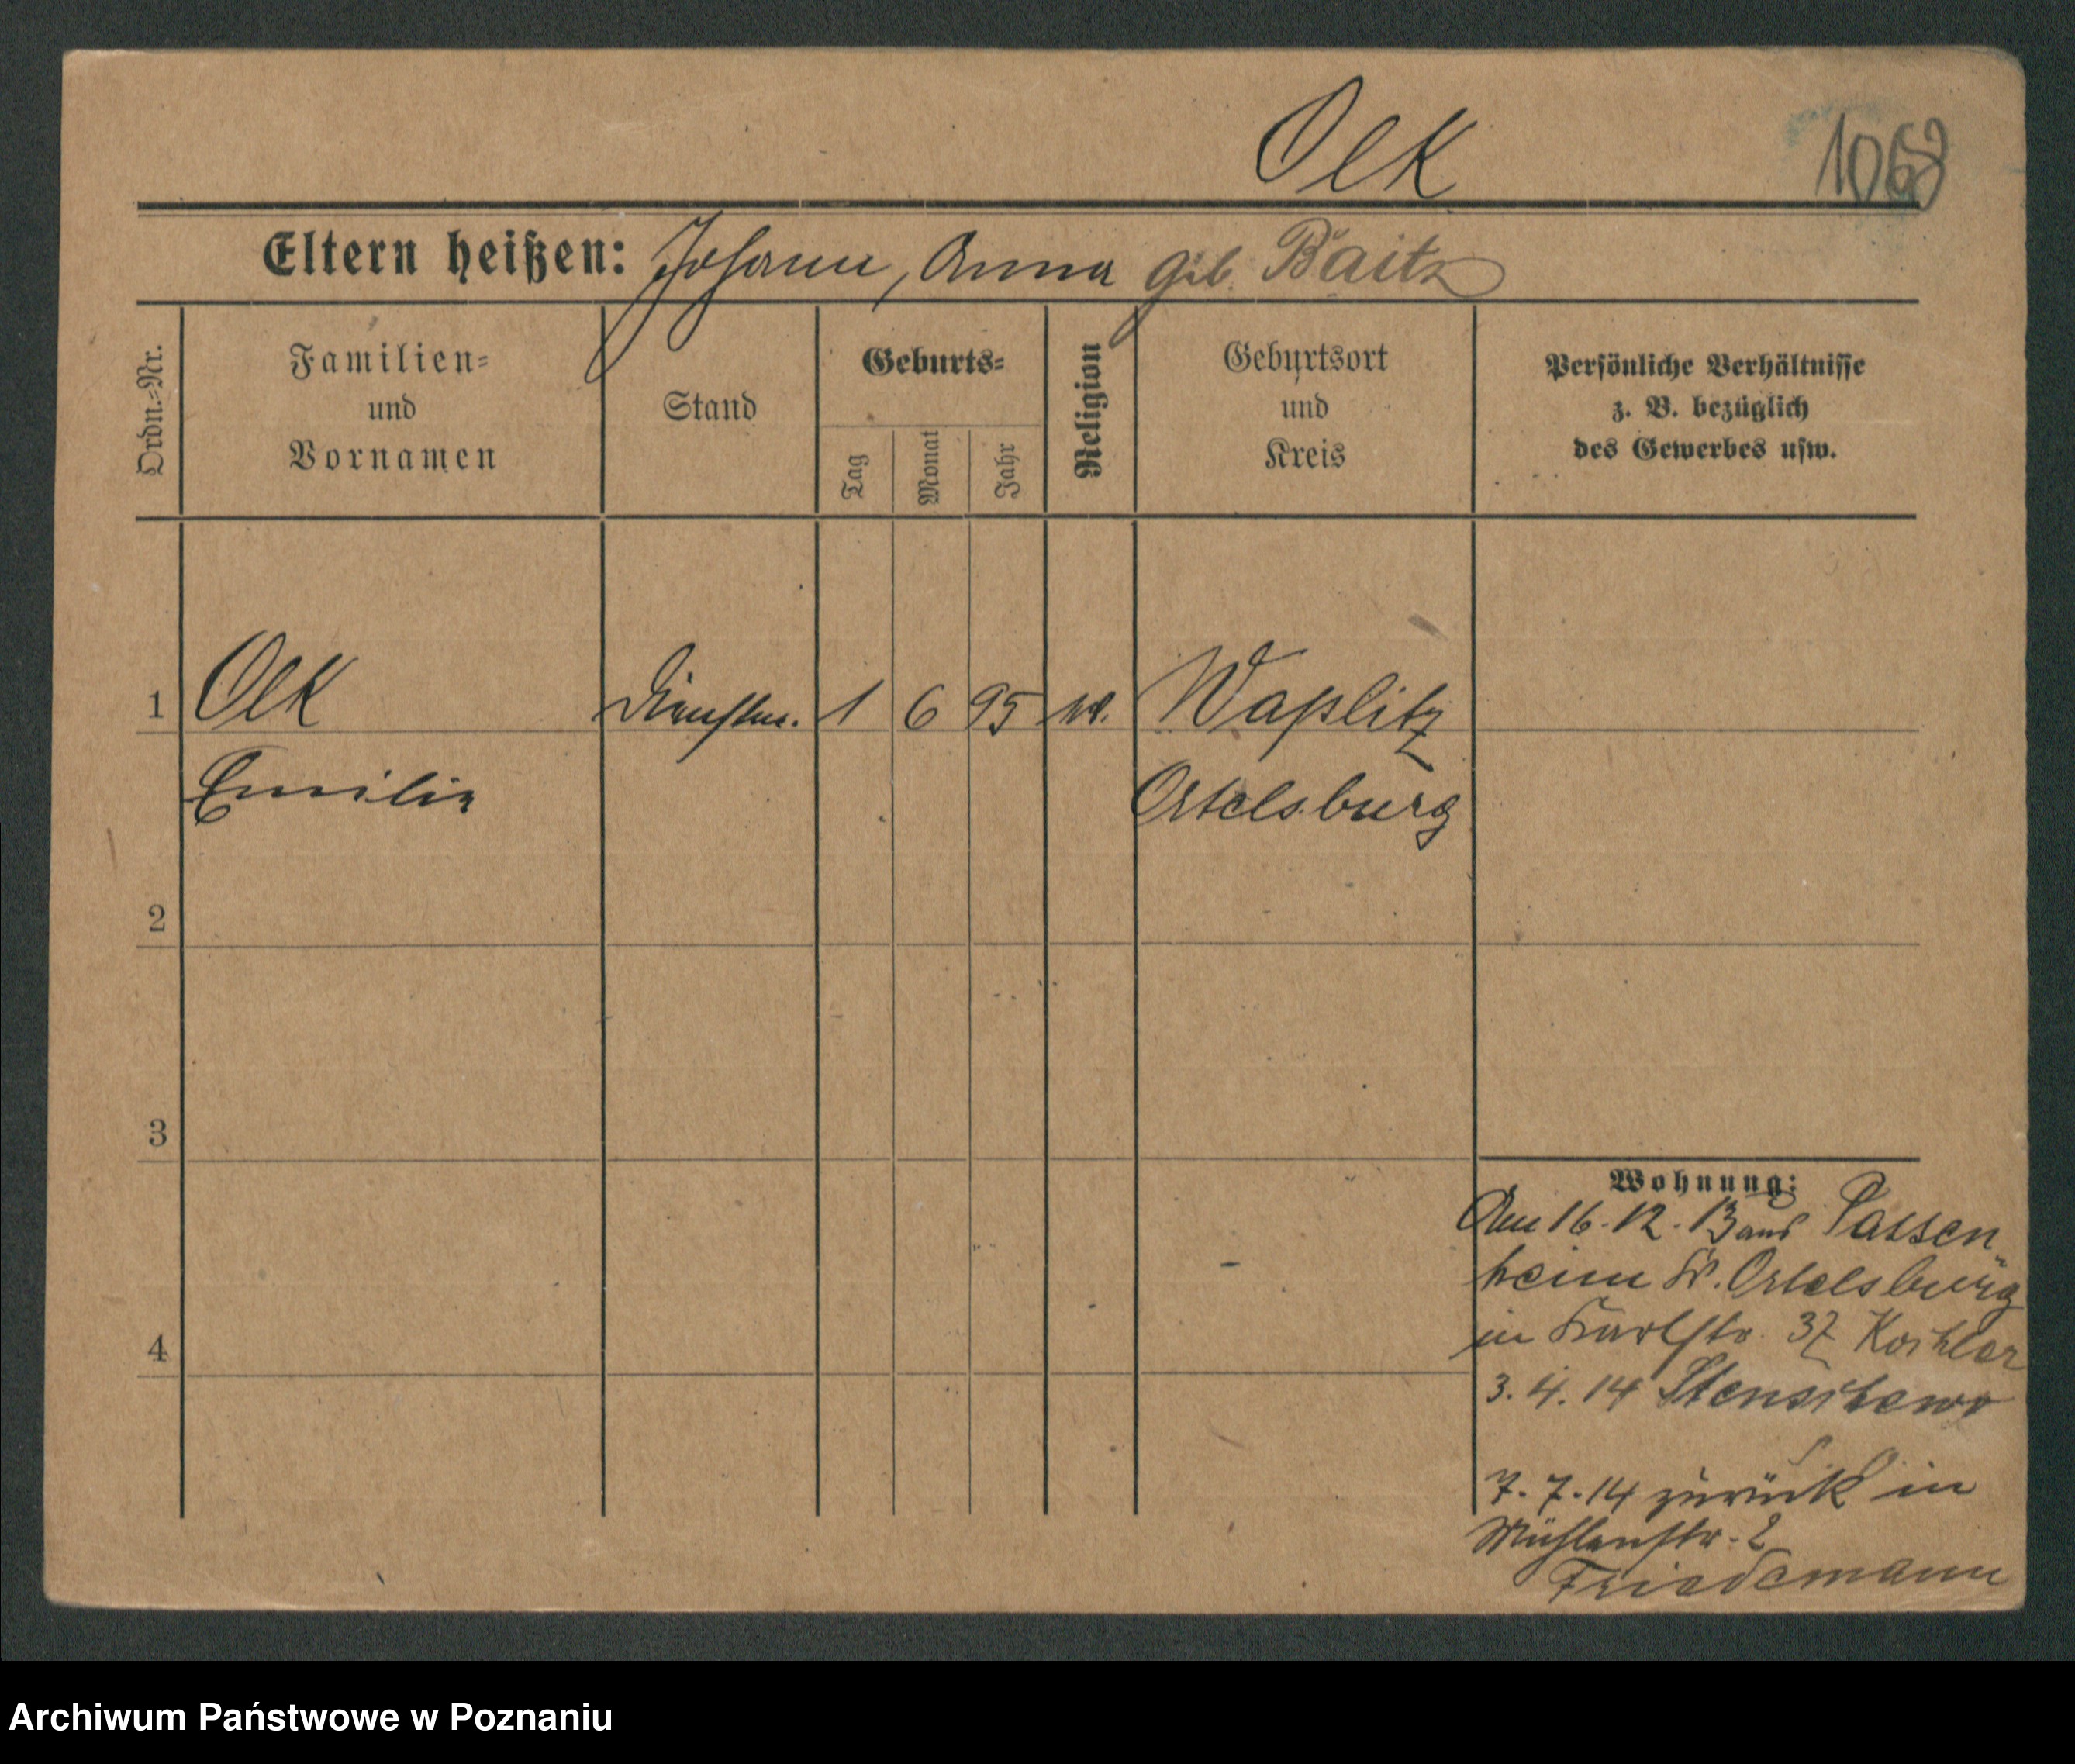 Olk
1068
Eltern heißen: Johann, Anna geb. Baitz
Ordn.-Nr.
Familien-
und
Vornamen
Stand
Geburts-
Tag
Monat
Jahr
Religion
Geburtsort
und
Kreis
Persönliche Verhältnisse
z. B. bezüglich
des Gewerbes usw.
1 Olk Dienstm. 1 6 95 Waplitz
Emilie Ortelsburg
2
3
4
Wohnung:
Am 16.12.13 aus Passen-
heim Kr. Ortelsburg
in Karlstr. 37
3.4.14 Stenschewo
7.7.14 zurück in
Mühlenstr. 2
Friedemann
Archiwum Państwowe w Poznaniu